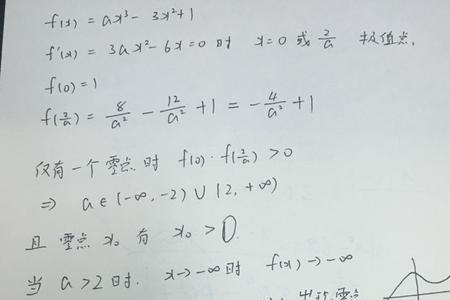 f(x) = ax³ - 3x² + 1
f'(x) = 3ax² - 6x = 0 时 x = 0 或 2/a 极值点.
f(0) = 1
f(2/a) = 8/a² - 12/a² + 1 = -4/a² + 1
仅有一个零点时 f(0)·f(2/a) > 0
⇒ a ∈ (-∞, -2) ∪ (2, +∞)
且 零点 x₀ 有 x₀ > 0.
当 a > 2 时. x → -∞ 时 f(x) → -∞
零点